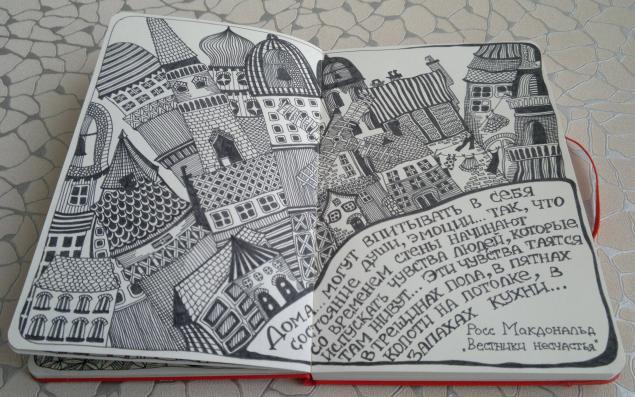 Дома... могут впитывать в себя
состояние души, эмоции... так, что
со временем стены начинают
испускать чувства людей, которые
там живут... Эти чувства таятся
в трещинах пола, в пятнах
копоти на потолке, в
запахах кухни...
Росс Макдональд
„Вестники несчастья"